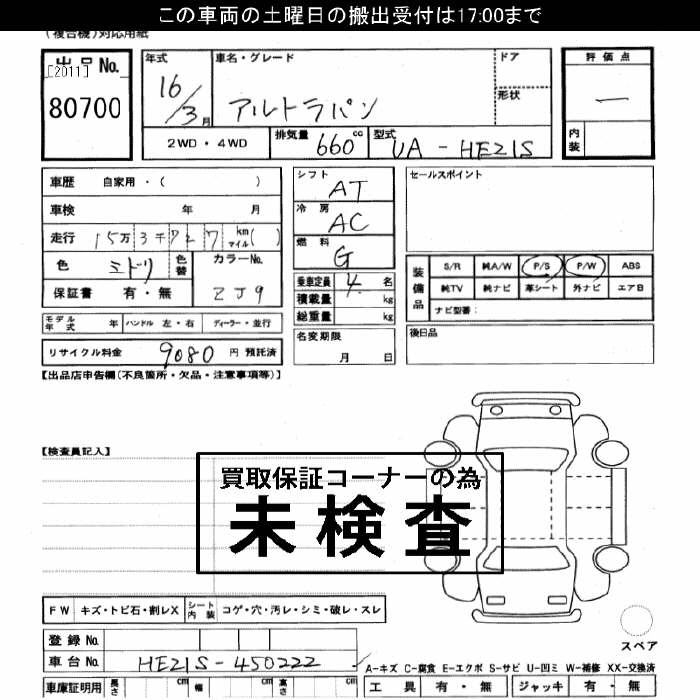 この車両の土曜日の搬出受付は17:00まで
(複合機)対応用紙
出品No.
[2011]
80700
年式
16/3月
車名・グレード
アルトラパン
ドア
形状
評価点
—
内装
2WD・4WD
排気量 660 cc
型式 UA-HE21S
車歴 自家用・( )
車検 年 月
走行 15万3千727 km マイル( )
色 ミドリ
色替
カラーNo.
ZJ9
保証書 有・無
シフト
AT
冷房
AC
燃料
G
乗車定員 4 名
積載量 kg
総重量 kg
セールスポイント
装備品
S/R 純A/W P/S P/W ABS
純TV 純ナビ 革シート 外ナビ エアB
ナビ型番:
モデル年式 年 ハンドル 左・右 ディーラー・並行
リサイクル料金 9080 円 預託済
名変期限
月 日
後日品
【出品店申告欄(不良箇所・欠品・注意事項等)】
【検査員記入】
買取保証コーナーの為
未検査
FW キズ・トビ石・割レX
シート内装 コゲ・穴・汚レ・シミ・破レ・スレ
登録No.
車台No. HE21S-450222
スペア
A-キズ C-腐食 E-エクボ S-サビ U-凹ミ W-補修 XX-交換済
車庫証明用 長さ cm 幅 cm 高さ cm
工具 有・無 ジャッキ 有・無